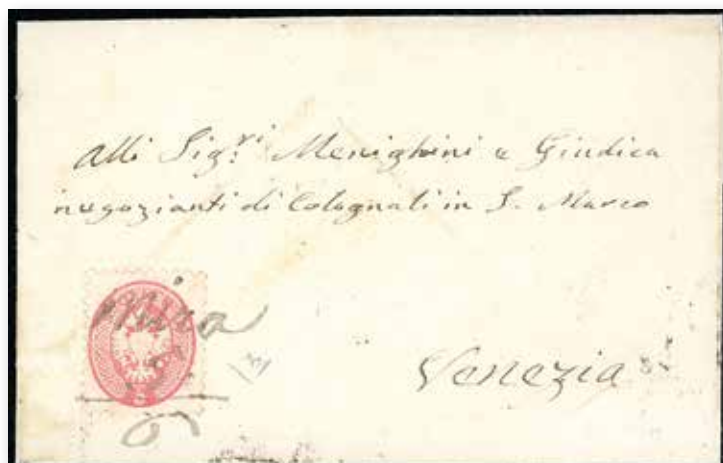 Alli Sig.ri Menighini e Giudica
negozianti di Colognali in S. Marco
Mira
Venezia